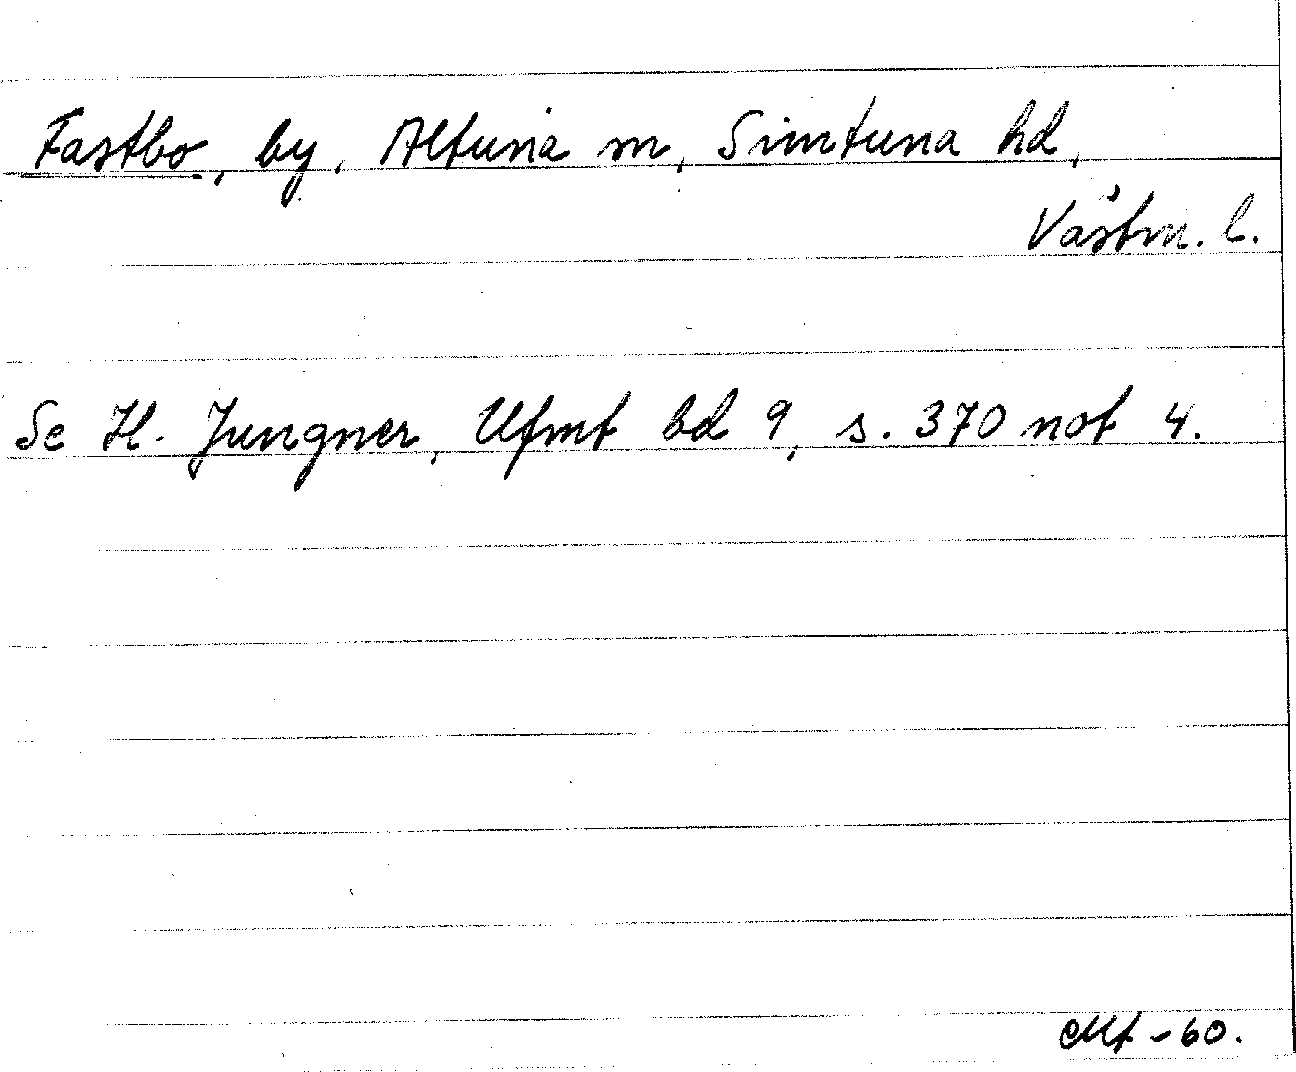 Fastbo, by, Altuna sn, Simtuna hd,
Västm. l.
Se H. Jungner, Ufmt bd 9, s. 370 not 4.
-60.